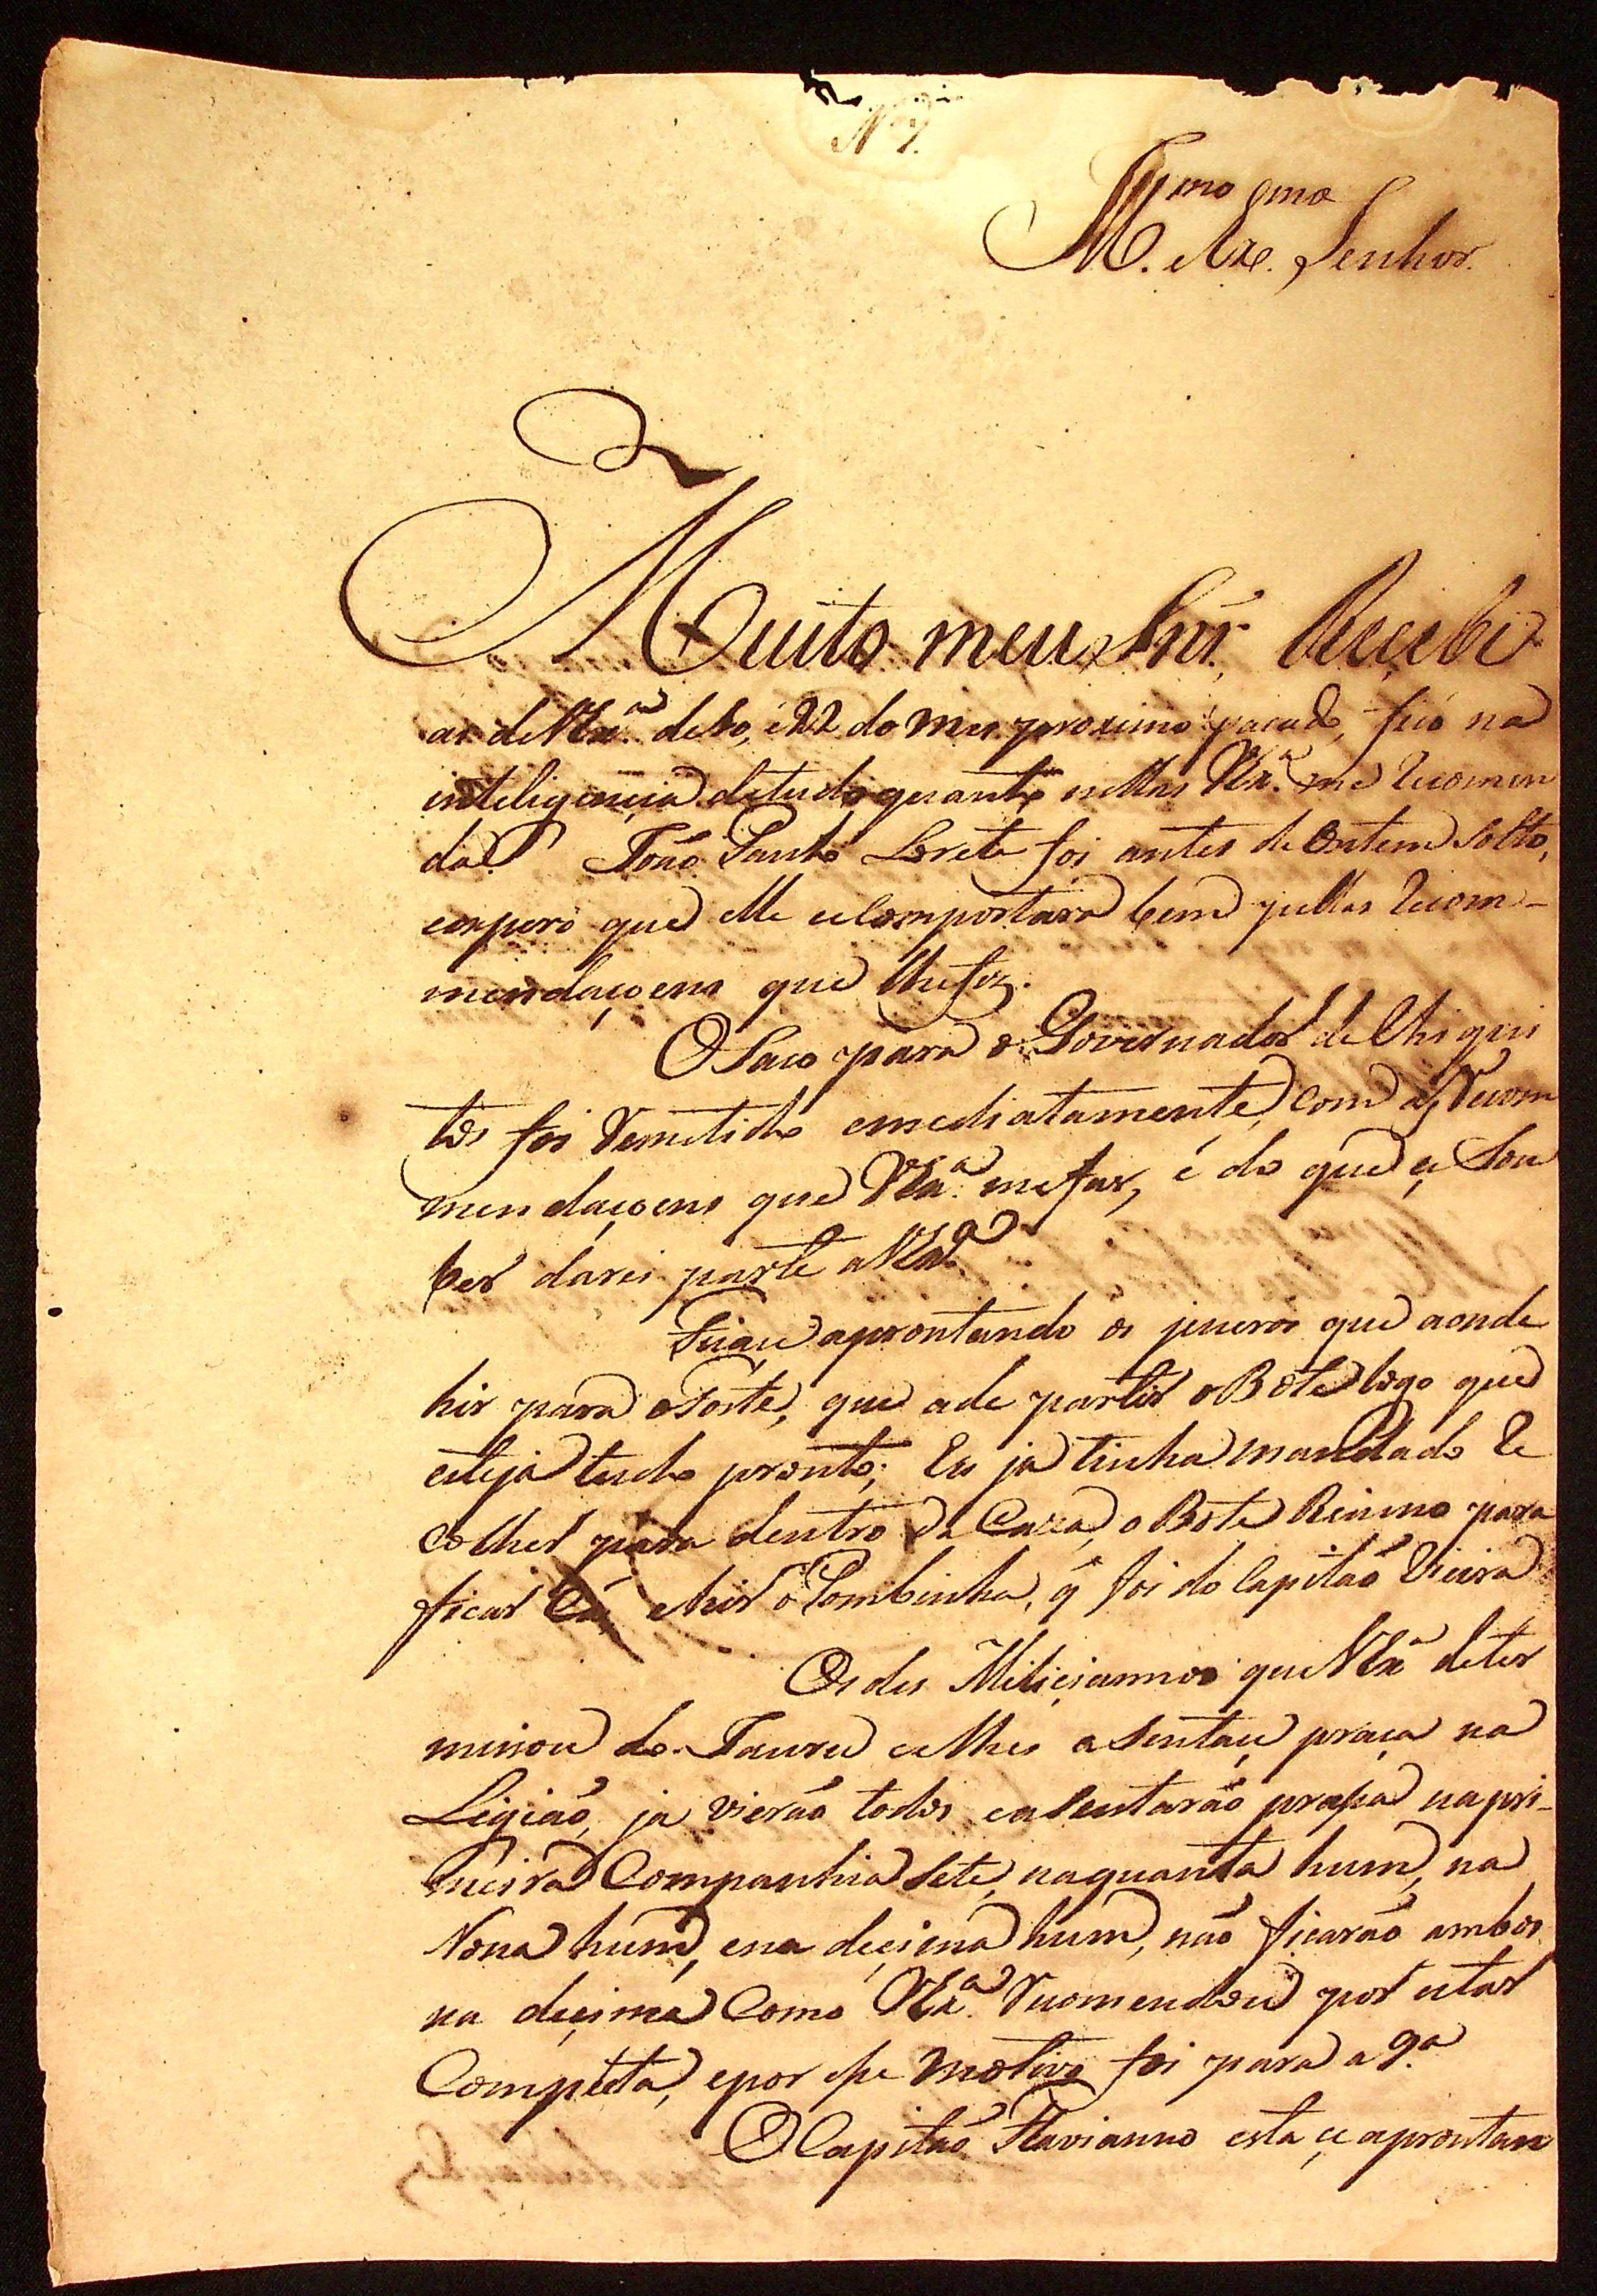 N.º 7.
Ill.mo e Ex.mo Senhor.
Muito meu Snr. Reçebi
as de VEx.ª de 20, é 22 do mes proximo paçado, ficó na
inteligençia detudo quanto nellas VEx.ª me Recomen
da. João Paulo Lorete foi antes de Ontem Solto,
espero que elle ce Comportara bem pellas Recom-
mendaçoens que lhefez.
O Saco para o Governador de Chiqui
tos foi Remetido emediatamente, com as Recom
mendaçoens que VEx.ª mefas, é do que ce Sou
ber darei parte a VEx.ª
Ficace aprontando os jeneros que aonde
hir para o Forte, que ade partir o Bote logo que
esteja tudo pronto; Eu ja tinha mandado Re
colher para dentro da Caza, o Bote Reinno para
ficar Cá, e hir o Pombinha, q̃ foi do Capitão Vieira
Os des Miliçiannos que VEx.ª deter
minou do Jauru e lhes asentaçe praça na
Ligião, ja vierão todos easentarão praça napri-
meira Companhia Sete, naquarta hum, na
Nona hum, ena deçima hum, não ficarão ambos
na deçima Como VEx.ª Recomendou por estar
Completa, epor esse motivo foi para a 9.ª
O Capitão Flavianno esta çe aprontan